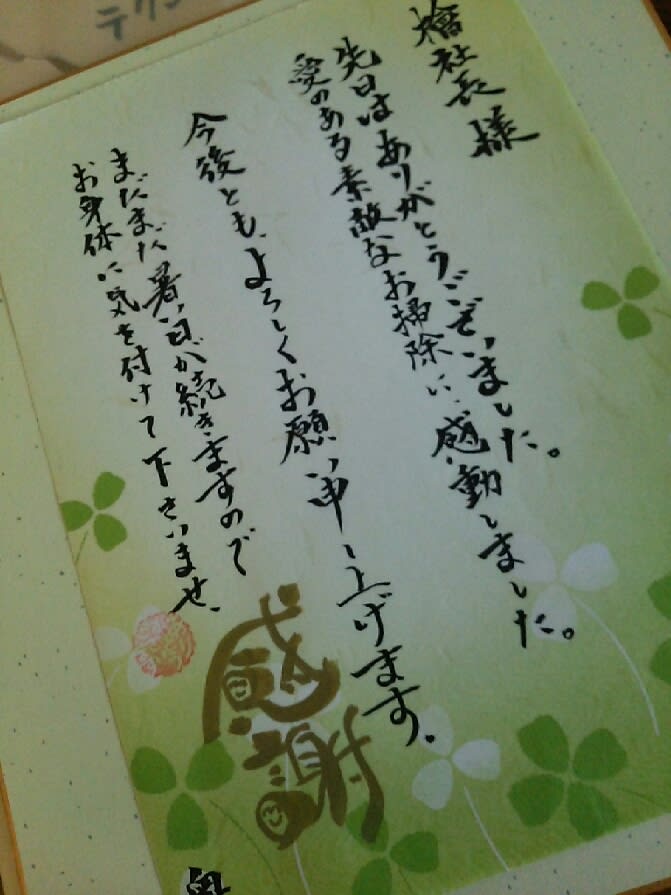 檜社長 様
先日はありがとうございました。
愛のある素敵なお掃除に、感動しました。
今後とも、よろしくお願い申し上げます。
まだまだ暑い日が続きますので
お身体に気を付けて下さいませ、
感謝
奥
テクン